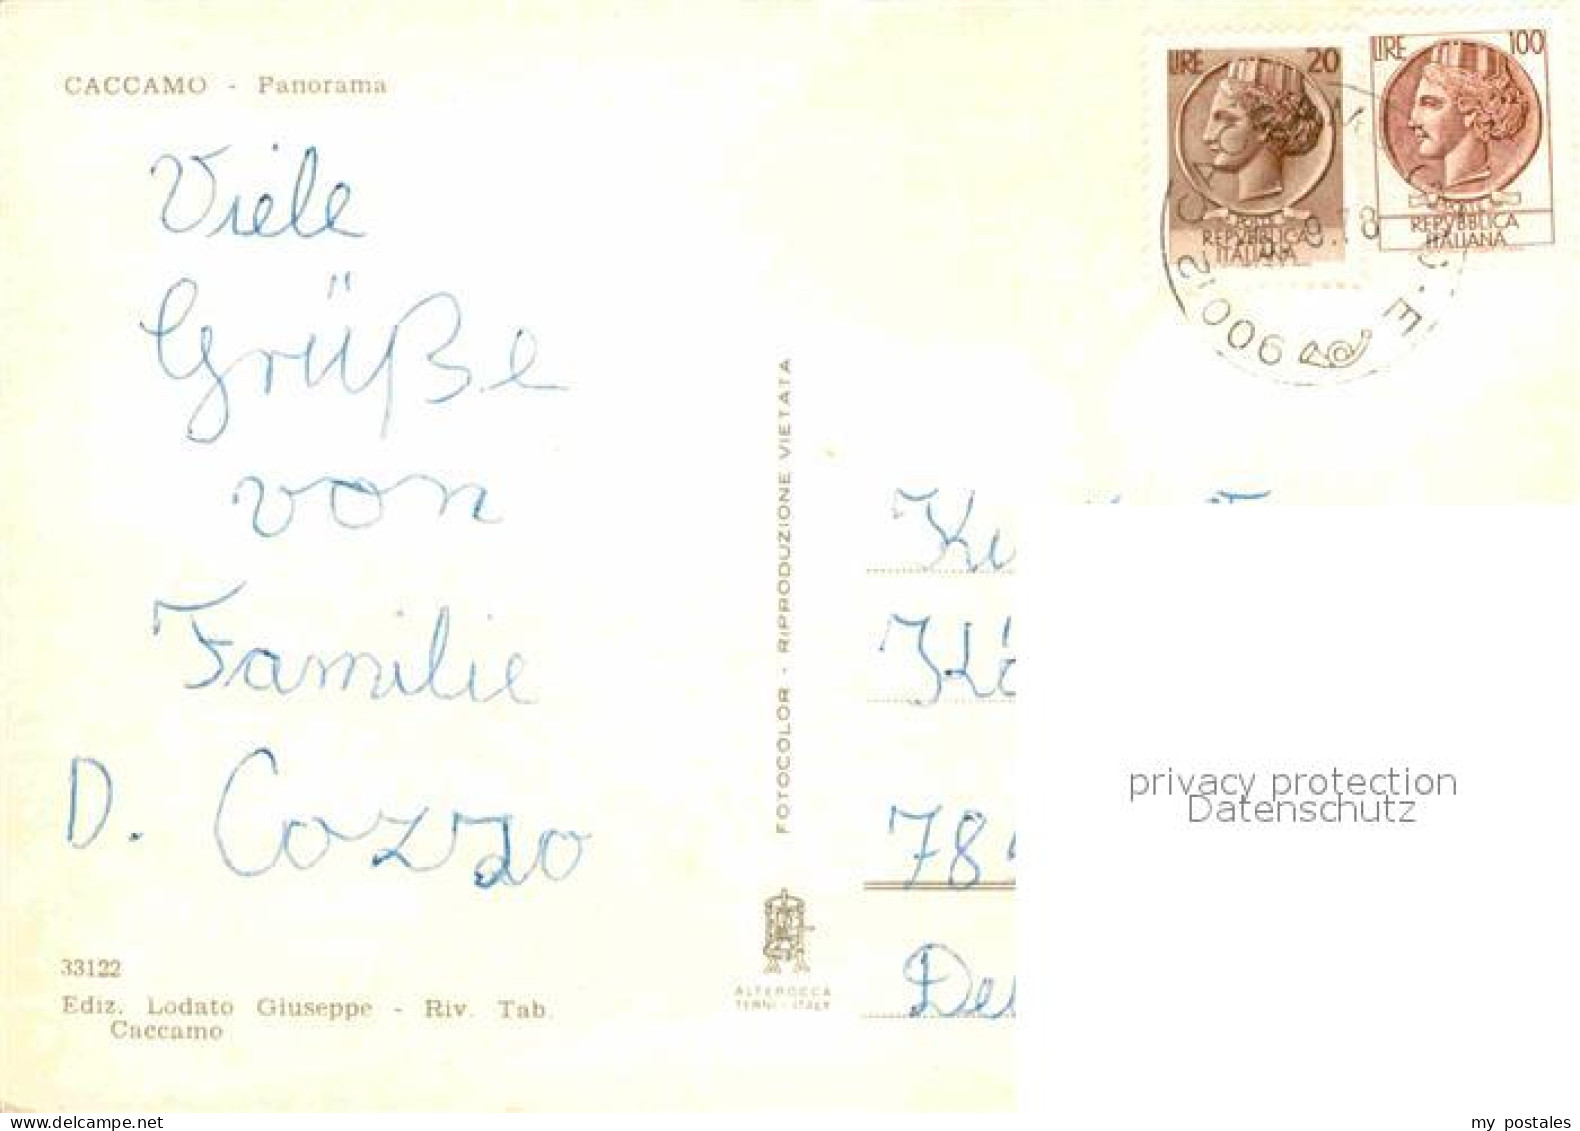 CACCAMO - Panorama
Viele
Grüße
von
Familie
D. Cozzo
33122
Ediz. Lodato Giuseppe - Riv. Tab.
Caccamo
FOTOCOLOR - RIPRODUZIONE VIETATA
ALTEROCCA
TERNI - ITALY
LIRE 20
REPVBBLICA
ITALIANA
LIRE 100
REPVBBLICA
ITALIANA
90012
78
privacy protection
Datenschutz
my postales